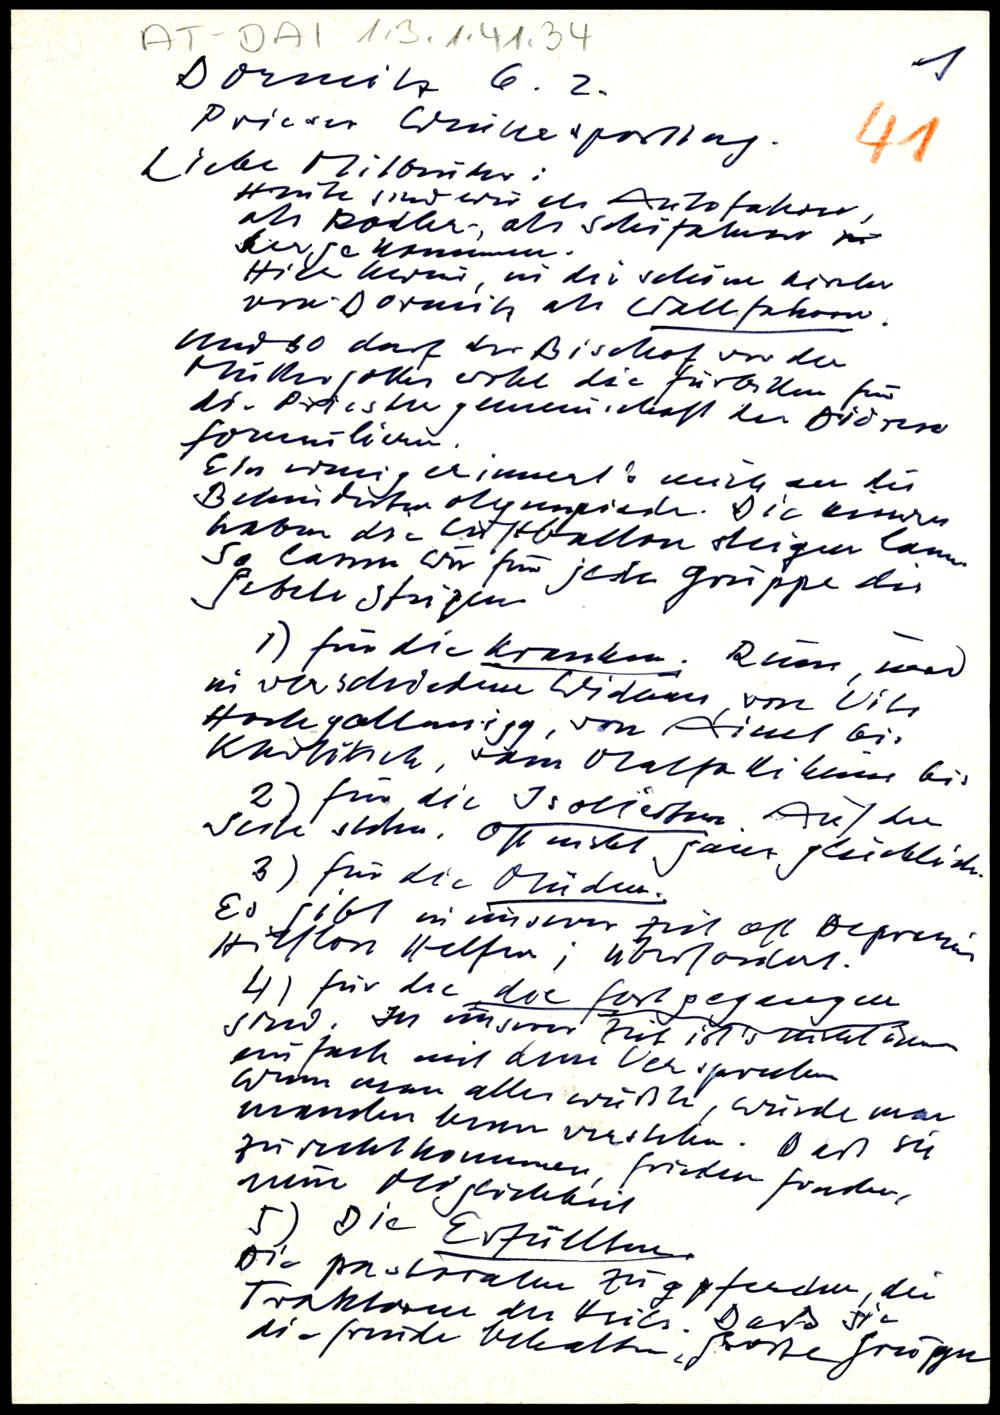 AT-DAI 1.3.1.41.34
1
41
Dormitz 6. 2.
Priester Wintersporttag.
Liebe Mitbrüder:
Heute sind wir als Autofahrer,
als Rodler, als Schifahrer
hergekommen.
Hier herin, in die schöne Kirche
von Dormitz als Wallfahrer.
Und so darf der Bischof vor der
Muttergottes wohl die Fürbitten für
die Priestergemeinschaft der Diözese
formulieren.
Ein wenig erinnert's mich an die
Behindertenolympiade. Die
haben die Luftballon steigen lassen
So lassen wir für jede Gruppe die
Gebete steigen
1) für die Kranken. Rum, und
in verschiedenen Widums, von Vils
Hochgallmigg, von bis
Kartitsch, vom bis
2) für die Isolierten. Auf der
Seite stehn. Oft nicht ganz glücklich.
3) für die Müden.
Es gibt in unserer Zeit oft Depression
Hilflose Helfer; überfordert.
4) für die, die fortgegangen
sind. In unserer Zeit ist's nicht immer
einfach mit dem Versprechen
Wenn man alles wüßte, würde man
manchen besser verstehen. Daß sie
zurechtkommen, Frieden finden,
neue Möglichkeit
5) Die Erfüllten.
Die pastoralen Zugpferde, die
Traktoren des Heils. Daß sie
die Freude behalten, große Gruppe